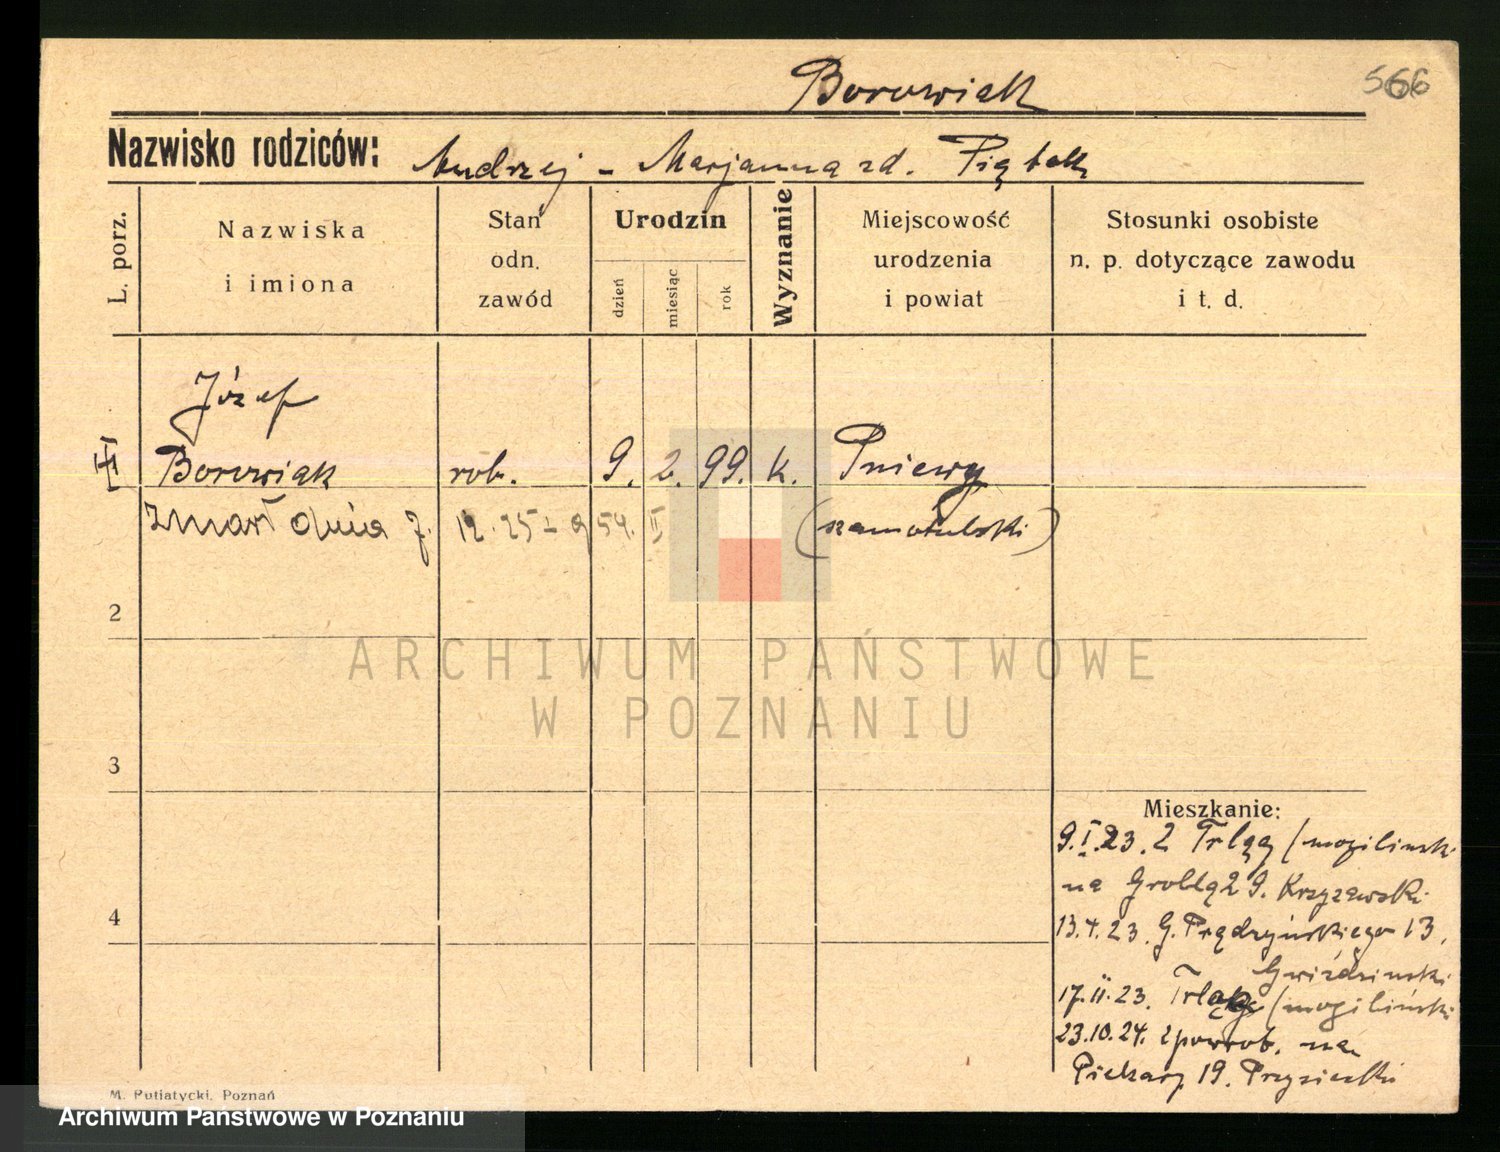 Borowiak
566
Nazwisko rodziców: Andrzej - Marjanna zd. Piątek
L. porz.
Nazwiska
i imiona
Stan
odn.
zawód
Urodzin
dzień
miesiąc
rok
Wyznanie
Miejscowość
urodzenia
i powiat
Stosunki osobiste
n. p. dotyczące zawodu
i t. d.
Józef
Borowiak rob. 9. 2. 99. k. Pniewy
Zmarł dnia 7. 12. 25 (szamotulski)
2
3
4
Mieszkanie:
9.I.23. z (mogilinski
na Groblą 29. Krzyżawski
13.4.23. G. Prądzyńskiego 13,
Gwiździnski
17.II.23. (mogiliński
23.10.24. zpowrot. na
Piekary 19. Przysiecki
M. Putiatycki, Poznań
ARCHIWUM PAŃSTWOWE
W POZNANIU
Archiwum Państwowe w Poznaniu